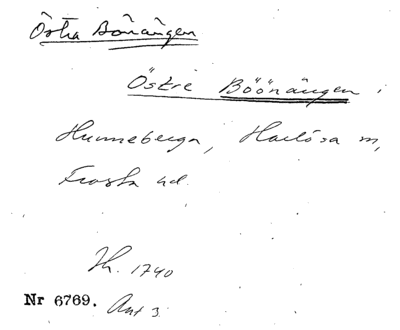 Östra Bönängen
Östre Böönängen i
Hunneberga, Harlösa sn,
Frosta hd.
Jb. 1740
Nr 6769. Ant 3.